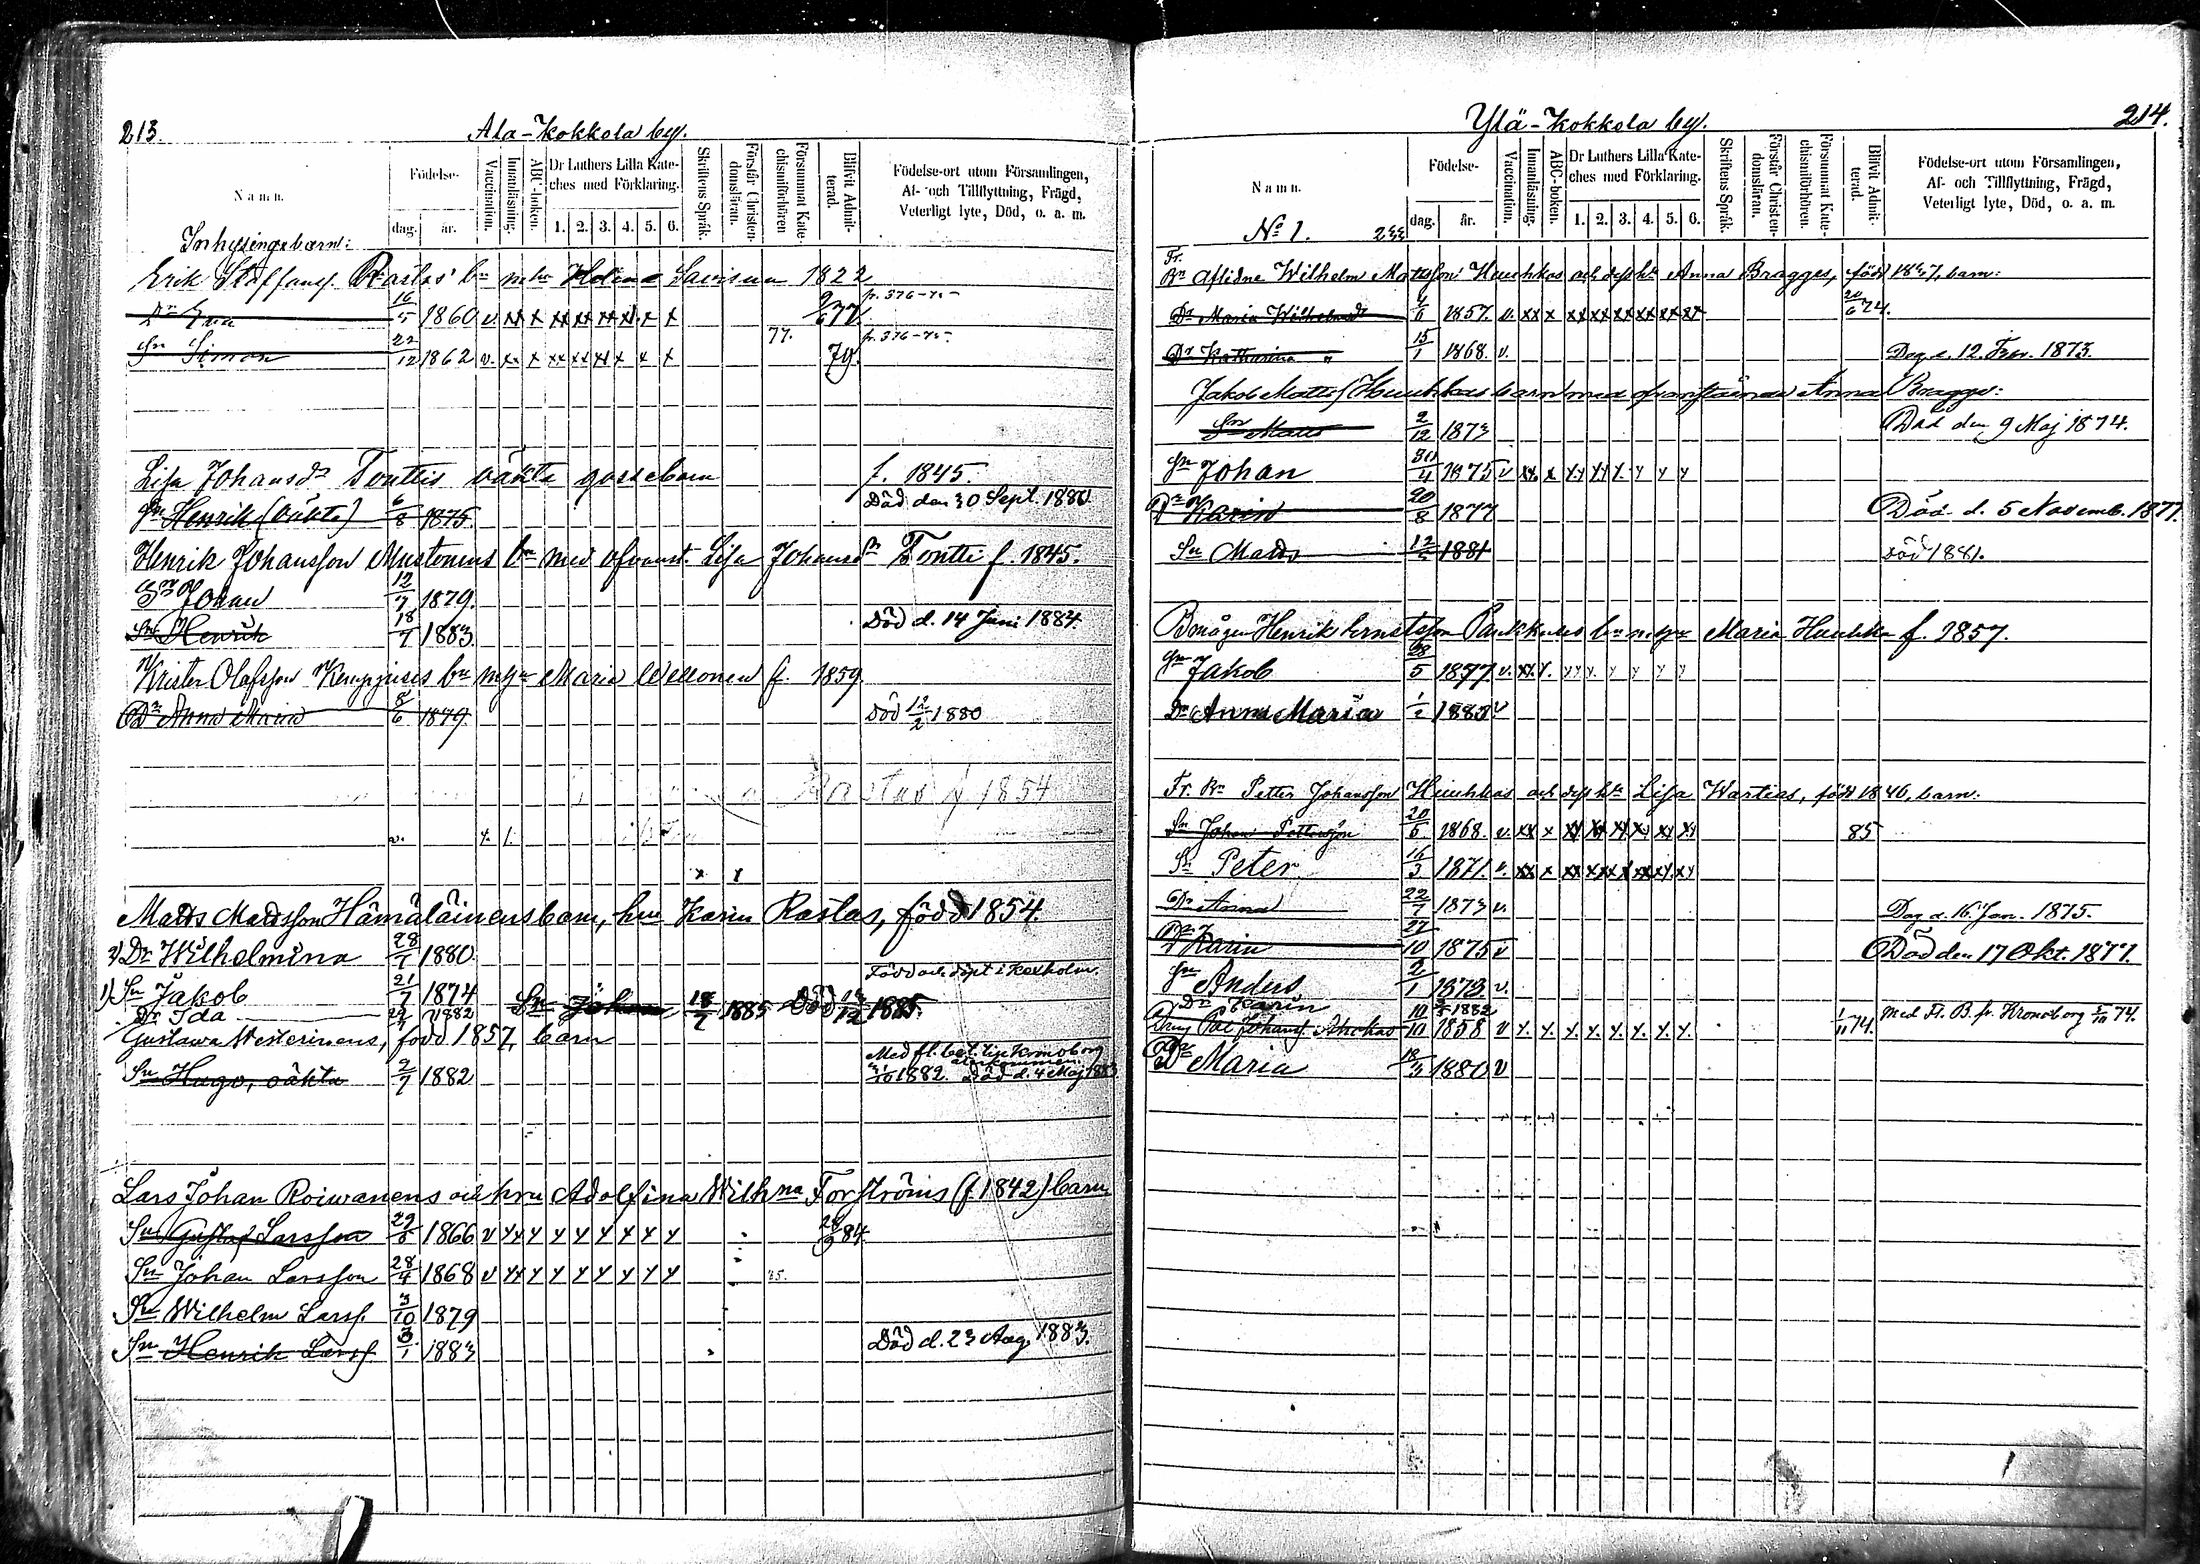 213.
Ala-Kokkola by.
Namn.
Födelse-
dag.
år.
Vaccination.
Innanläsning.
ABC-boken.
Dr Luthers Lilla Kate-
ches med Förklaring.
1. 2. 3. 4. 5. 6.
Skriftens Språk.
Förstår Christen-
domsläran.
Försummat Kate-
chismiförhören
Blifvit Admit-
terad.
Födelse-ort utom Församlingen,
Af- och Tillflyttning, Frägd,
Veterligt lyte, Död, o. a. m.
Inhysingebarn:
Erik Staffanss. Rastas' bn m hu Helena Savisaa 1822
Dr Eva 16/5 1860 v xx x xx xx xx x x x 9/6 77. fr. 376-75-
Sn Simon 22/12 1862 v. xx x xx xx xx x x x 77. 79. fr. 376-75-
Lisa Johansdr Tonttis oäkta gossebarn f. 1845.
Sn Henrik (oäkta) 6/8 1875 Död den 30 Sept. 1880.
Henrik Johansson Mustonens bn med ofvanst. Lisa Johansdr Tontti f. 1845.
Sn Johan 12/7 1879.
Sn Henrik 18/7 1883. Död d. 14 Juni 1884.
Krister Olafsson Kemppises bn m hu Maria Wellonen f. 1859
Dr Anna Maria 8/6 1879 Död 12/2 1880
Rastas f 1854
Matts Mattsson Hämäläinens barn, hu Karin Rastas, född 1854.
2) Dr Wilhelmina 28/7 1880
Född och döpt i Kexholm.
1) Sn Jakob 21/7 1874 Sn Johan 18/7 1885 Död 13/12 1885.
Dr Ida 1882
Gustava Westerinens, född 1857, barn
Sn Hugo, oäkta 2/7 1882 Med fl. bet. till Kronoborg
1882. återkommen. Död d. 4 Maj 1883
Lars Johan Roiwanens och hru Adolfina Wilhna Forströms (f. 1842) barn
Sn Gustaf Larsson 29/8 1866 v xx x x x x x x x 28/9 84.
Sn Johan Larsson 28/9 1868 v xx x x x x x x x 85.
Sn Wilhelm Larss. 3/10 1879
Sn Henrik Larss. 3/1 1883 Död d. 23 Aug. 1883.
214.
Ylä-Kokkola by.
Namn.
Födelse-
dag.
år.
Vaccination.
Innanläsning.
ABC-boken.
Dr Luthers Lilla Kate-
ches med Förklaring.
1. 2. 3. 4. 5. 6.
Skriftens Språk.
Förstår Christen-
domsläran.
Försummat Kate-
chismiförhören.
Blifvit Admit-
terad.
Födelse-ort utom Församlingen,
Af- och Tillflyttning, Frägd,
Veterligt lyte, Död, o. a. m.
No 1. 233
Fr.
Bn Aflidne Wilhelm Matsson Huuhkas och dess hu Anna Bragges, född 1837, barn:
Dr Maria Wilhelmsdr 4/6 1857. v. xx x xx xx xx xx xx xx 20/6 74.
Dr Katharina " 15/1 1868. v. Dog d. 12. Febr. 1873.
Jakob Matts. Huuhkas barn med ofvanstående Anna Bragge:
Sn Matts 2/12 1873 Död den 9 Maj 1874.
Sn Johan 30/4 1875 v xx x xx xx x x x x
Dr Karin 20/8 1877 Död d. 5 Novemb. 1877.
Sn Matts 12/5 1881 Död 1881.
Bonågen Henrik Ernstsson Paukkunes bn m hu Maria Huuhka f. 1857.
Sn Jakob 28/5 1877 v. xx x. xx x x x x x
Dr Anna Maria 1/2 1883 v
Fr. Bn Petter Johansson Huuhkas och dess hu Lisa Wartias, född 1846, barn:
Sn Johan Pettersson 20/6 1868. v. xx x xx xx xx xx xx xx 85
Sn Peter 16/3 1871. v. xx x xx xx x xx xx xx
Dr Anna 22/7 1873 v. Dog d. 16 Jan. 1875.
Dr Karin 27/10 1875 v Död den 17 Okt. 1877.
Sn Anders 2/1 1873. v.
Dr Karin 1882
Drng Pål Johanss. Ahokas 10/10 1858 v x. x. x. x. x. x. x. x. 1/11 74. Med Fl. B. fr. Kronoborg 5/10 74.
Dr Maria 18/3 1880 v